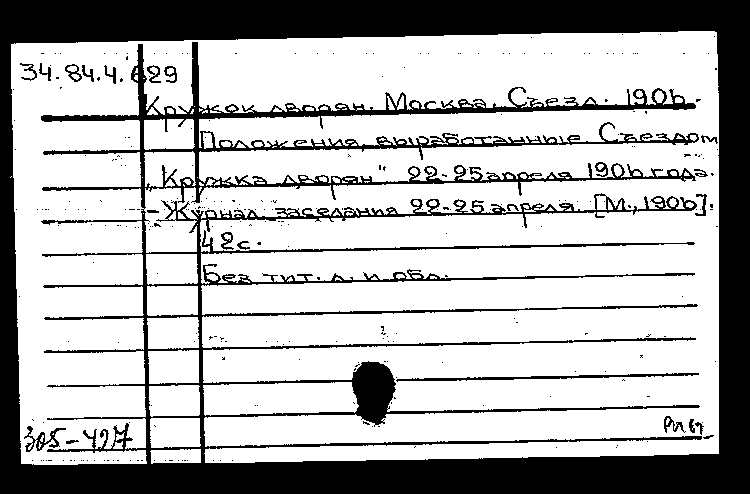 34.84.4.629
Кружок дворян. Москва. Съезд. 1906.
Положения, выработанные Съездом
„Кружка дворян" 22-25 апреля 1906 года.
- Журнал заседания 22-25 апреля. [М., 1906].
42с.
Без тит. л. и обл.
305-427